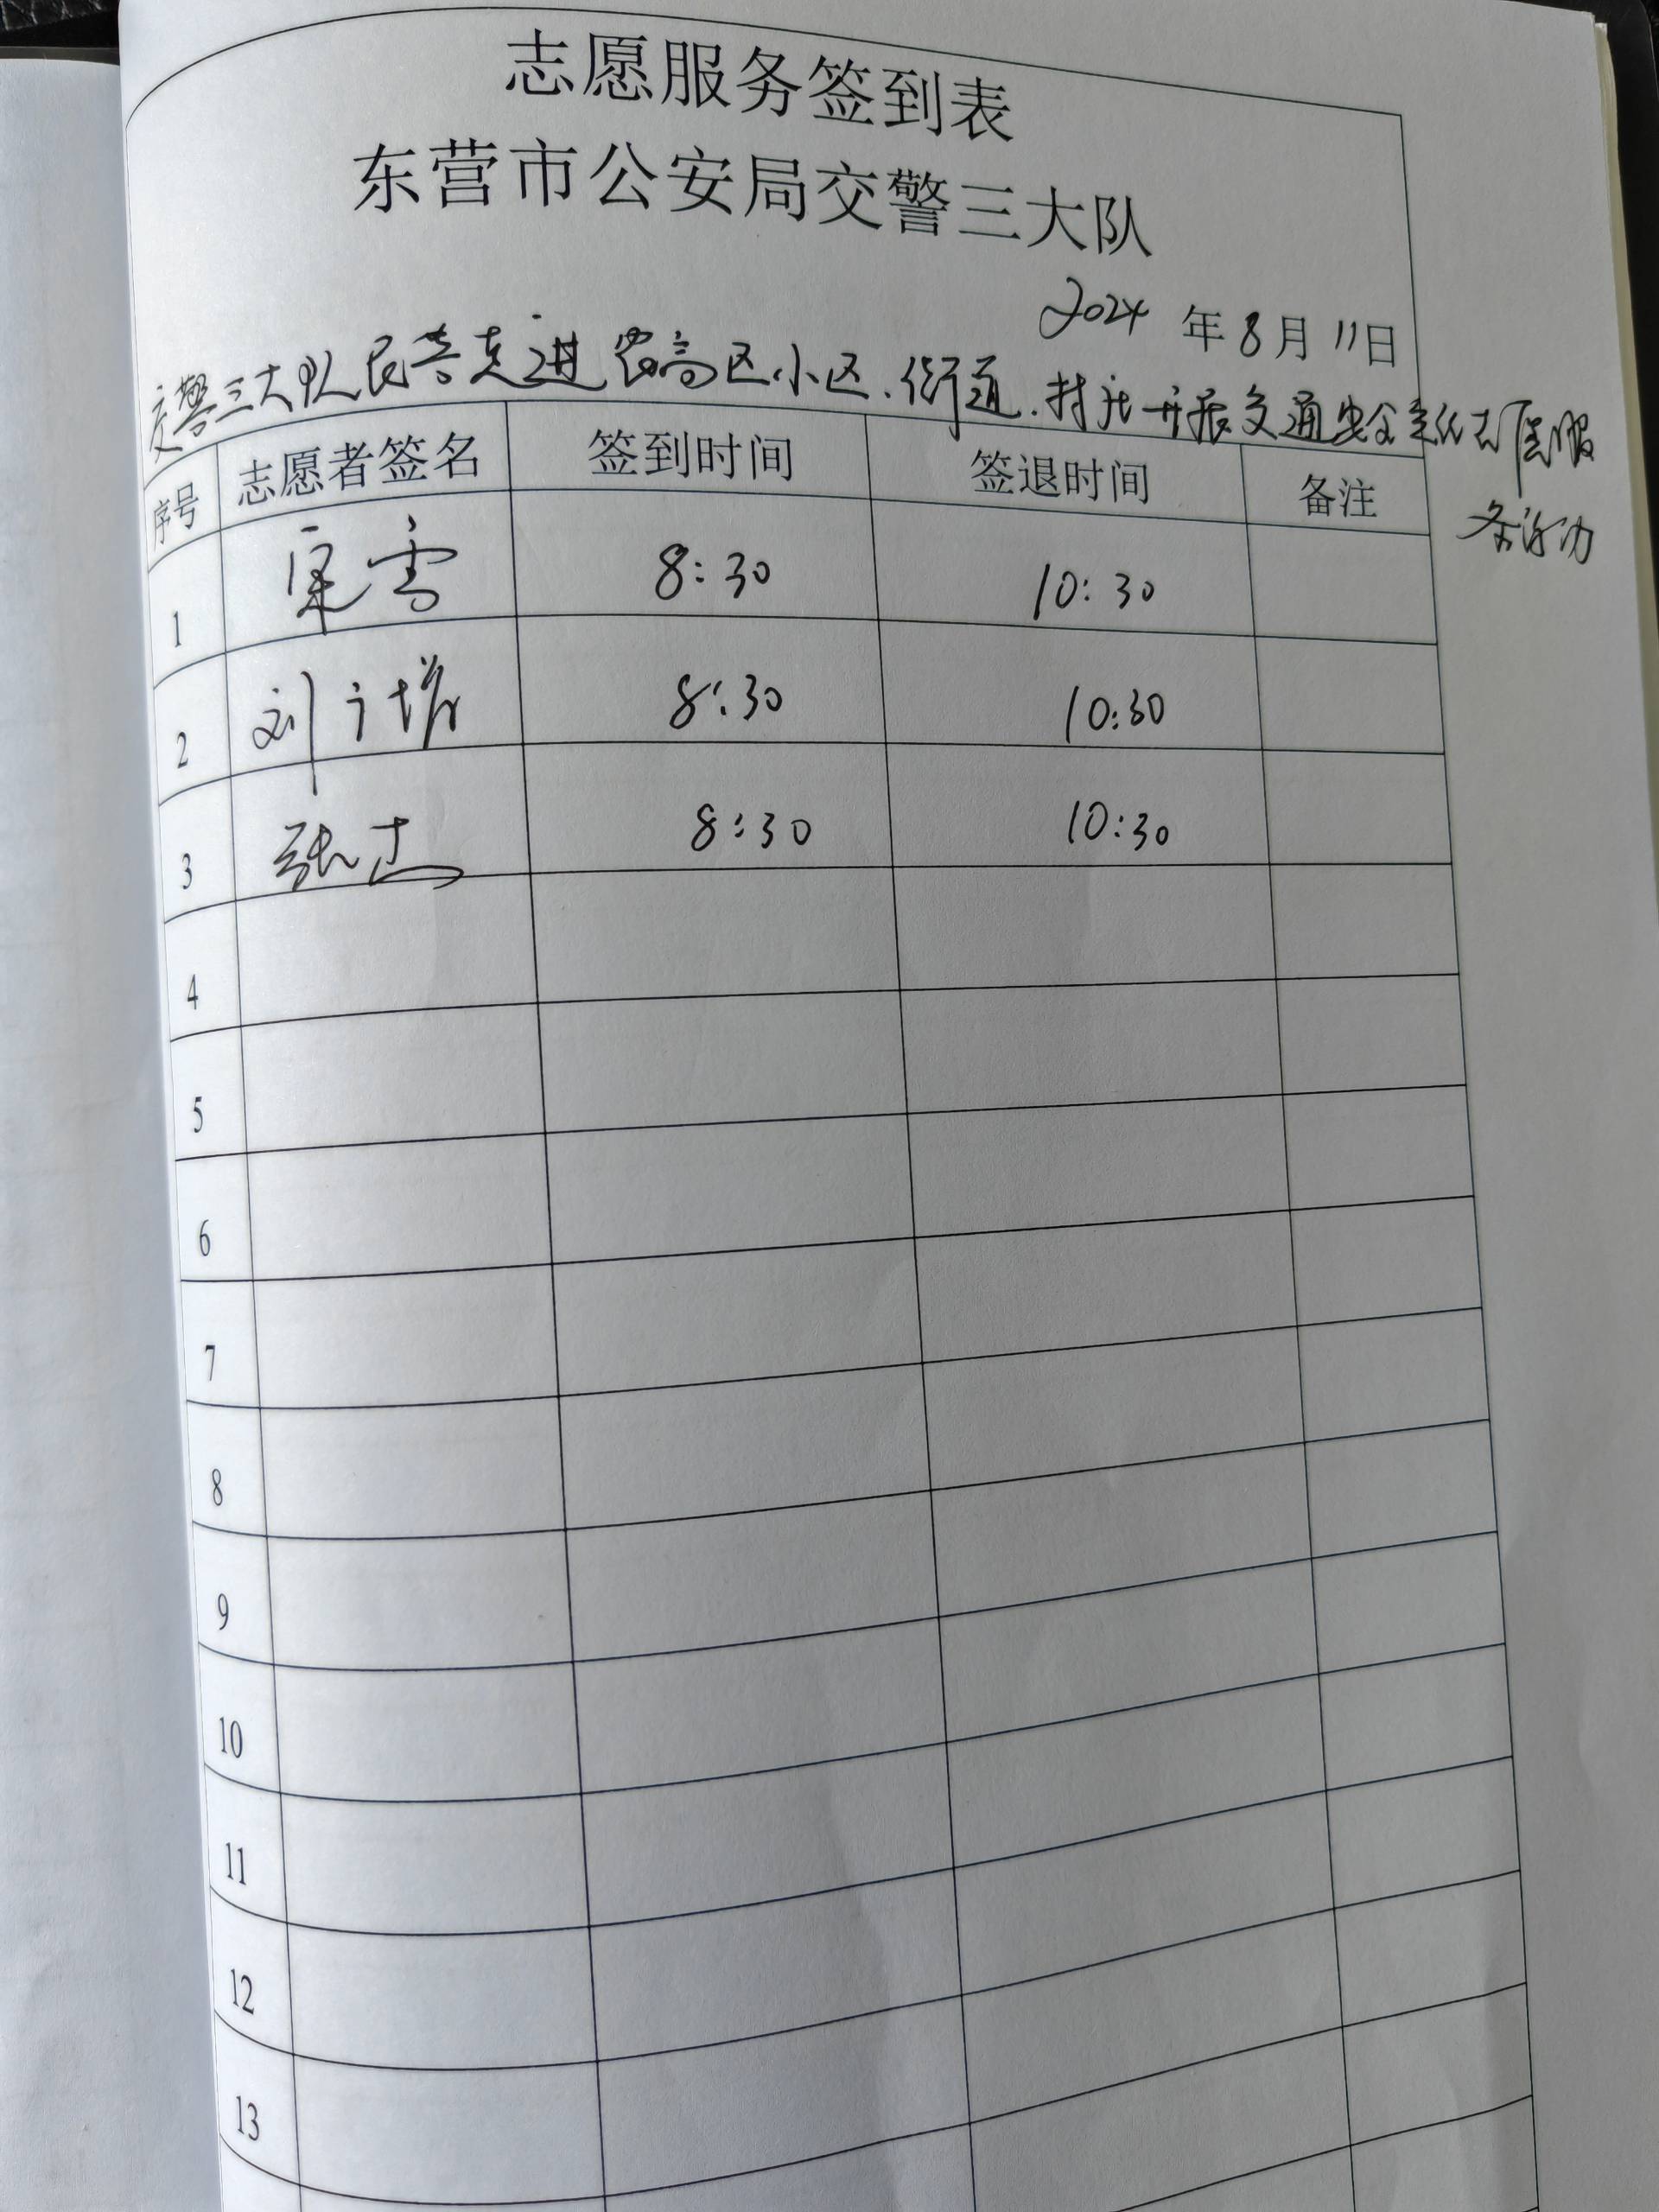 志愿服务签到表
东营市公安局交警三大队
2024 年 8 月 11 日
交警三大队民警走进农高区小区、街道、村庄开展交通安全宣传志愿服
务活动
序号 志愿者签名 签到时间 签退时间 备注
1 8:30 10:30
2 刘 8:30 10:30
3 张杰 8:30 10:30
4
5
6
7
8
9
10
11
12
13